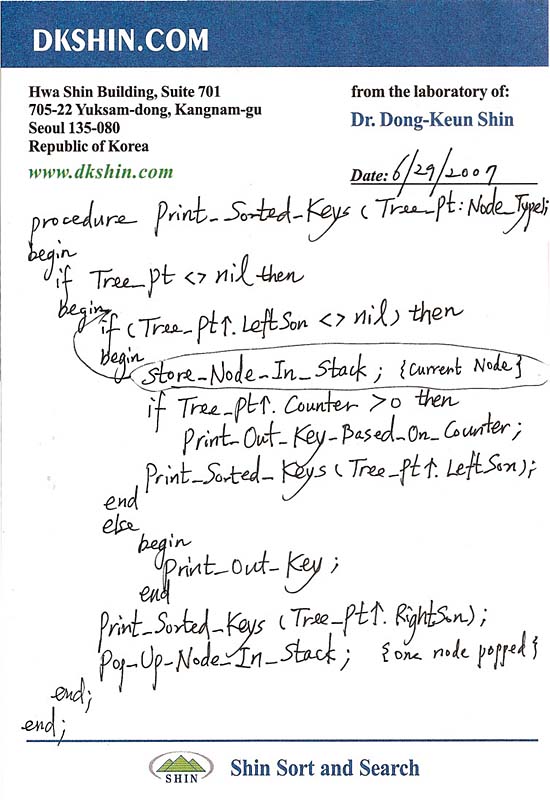 DKSHIN.COM
Hwa Shin Building, Suite 701
705-22 Yuksam-dong, Kangnam-gu
Seoul 135-080
Republic of Korea
www.dkshin.com
from the laboratory of:
Dr. Dong-Keun Shin
Date: 6/29/2007
procedure Print_Sorted_Keys (Tree_pt: Node_Type);
begin
if Tree_pt <> nil then
begin
if (Tree_pt↑. LeftSon <> nil) then
begin
Store_Node_In_Stack ; {Current Node}
if Tree_pt↑. Counter >0 then
Print_Out_Key_Based_On_Counter;
Print_Sorted_Keys (Tree_pt↑. LeftSon);
end
else
begin
Print_Out_Key ;
end
Print_Sorted_Keys (Tree_pt↑. RightSon);
Pop_Up_Node_In_Stack ; {one node popped}
end;
end;
SHIN
Shin Sort and Search